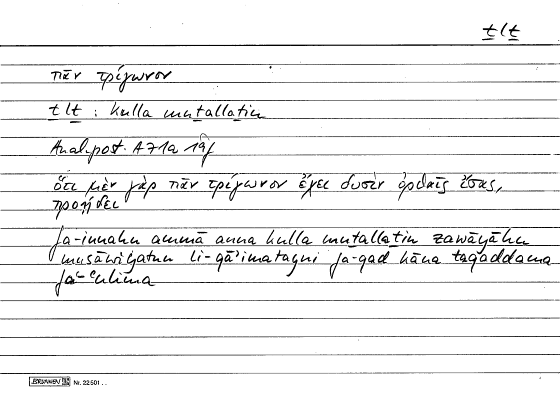 ṯlṯ
πᾶν τρίγωνον
ṯlṯ : kulla muṯallaṯin
Anal. post. A 71a 19f
ὅτι μὲν γὰρ πᾶν τρίγωνον ἔχει δυσὶν ὀρθαῖς ἴσας,
προῄδει
fa-innahu ammā anna kulla muṯallaṯin zawāyāhu
musāwiyatun li-qā'imatayni fa-qad kāna taqaddama
fa-ʿulima
BRUNNEN Nr. 22501 . .